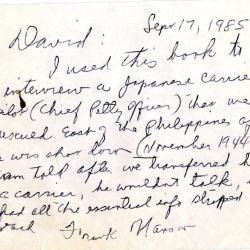 Sept 17, 1985
David:
I used this book to
interview a Japanese carrier
pilot (Chief Petty Officer) that we
rescued East of the Philippines
he was shot down (November 1944
am told after we transferred
a carrier, he wouldn't talk,
had all the essential info
Frank